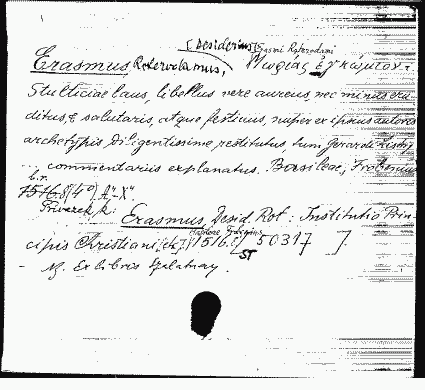 [Desiderius] Erasmi Roterodami
Erasmus, Roterodamus, Μωρίας ἐγκώμιον.
Stulticiae laus, libellus vere aureus, nec minus eru-
ditus, & salutaris, atque festivus, nuper ex ipsius autoris
archetypis diligentissime restitutus, tum Gerardi Listrij
commentariis explanatus. Basileae, Frobenius
1516. 4°
Erasmus, Desid. Rot: Institutio Prin-
cipis Christiani 1516. 50317 ].
ST
- Ex libris